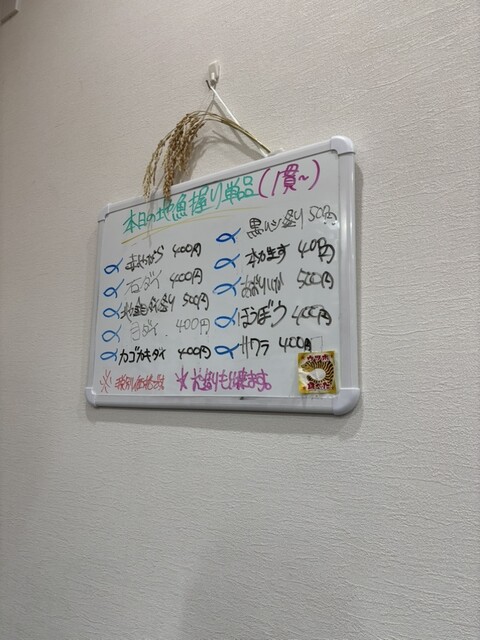 本日の地魚握り単品(1貫〜)
400円
石ダイ 400円
炙り 500円
目ダイ 400円
カゴカキダイ 400円
黒ムツ炙り 500円
本カます 400円
あおりいか 500円
ほうぼう 400円
サワラ 400円
※ 税別価格です
※炙りも出来ます。